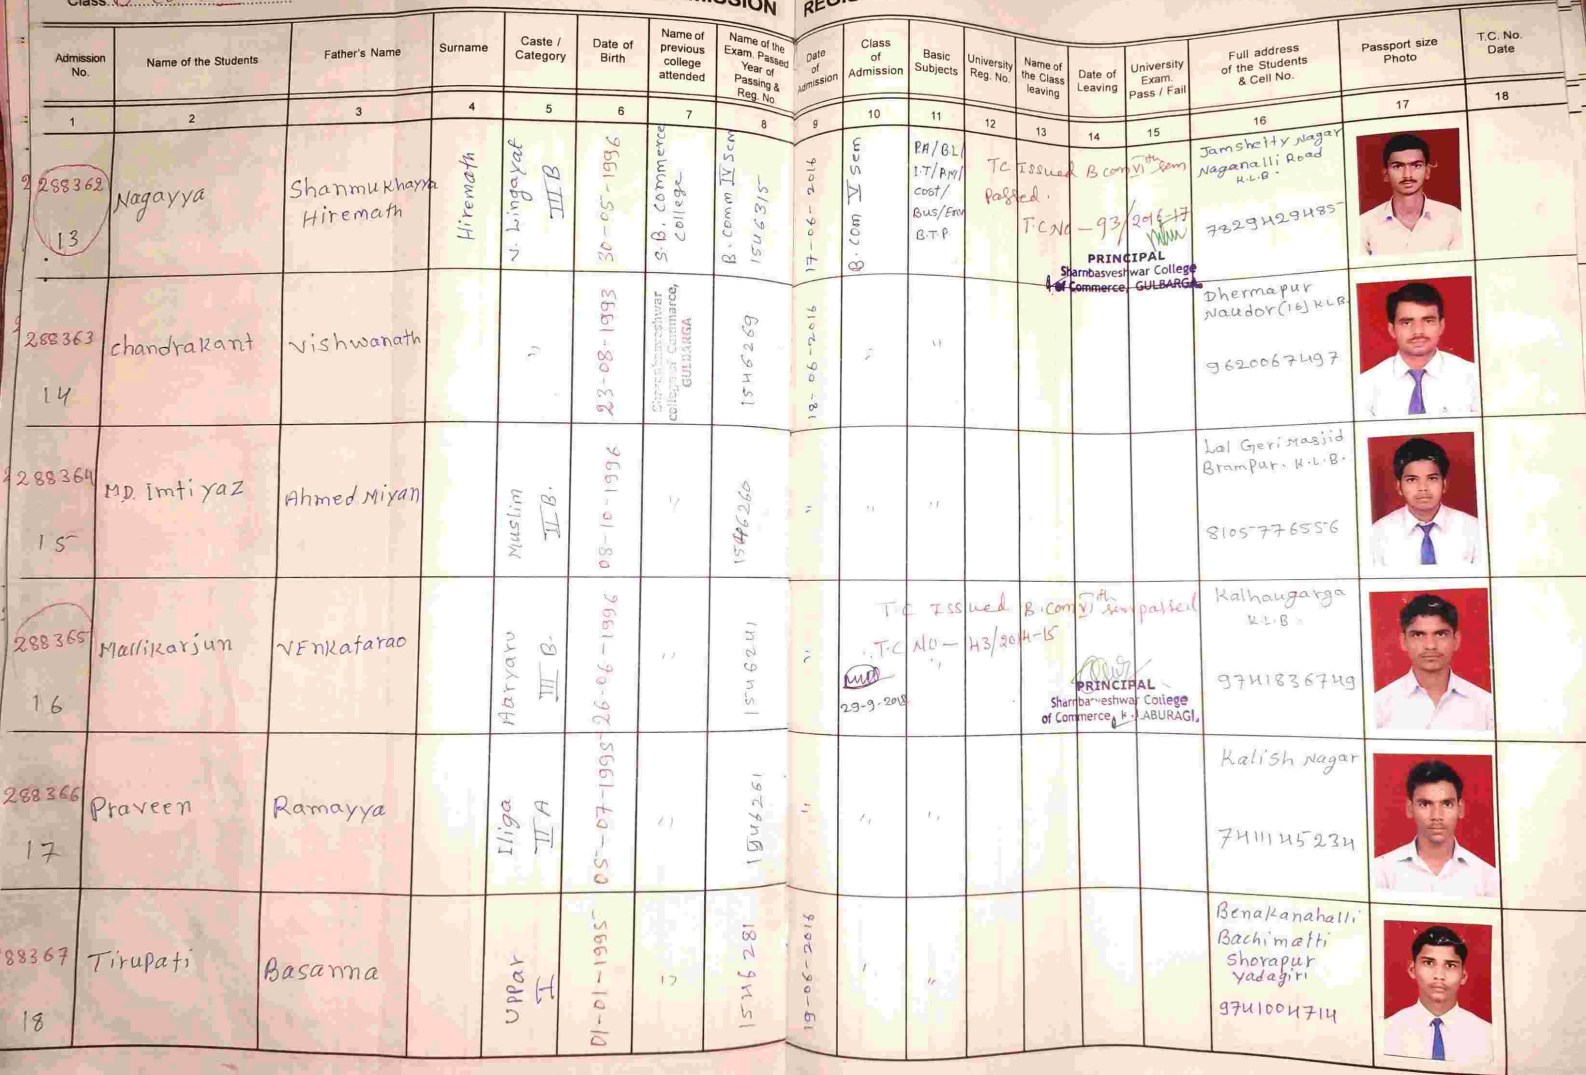 Class
SSION REGIS
Admission No.
Name of the Students
Father's Name
Surname
Caste / Category
Date of Birth
Name of previous college attended
Name of the Exam. Passed Year of Passing & Reg. No.
Date of Admission
Class of Admission
Basic Subjects
University Reg. No.
Name of the Class leaving
Date of Leaving
University Exam. Pass / Fail
Full address of the Students & Cell No.
Passport size Photo
T.C. No. Date
1 2 3 4 5 6 7 8 9 10 11 12 13 14 15 16 17 18
288362
13
Nagayya
Shanmukhayya
Hiremath
Hiremath
Lingayat
III B
30-05-1996
S.B. Commerce
College
B.comm IV Sem
1546315
17-06-2016
B.com V sem
PA/BL/
I.T/RM/
Cost/
Bus/Env
B.T.P
TC Issued B com VIth sem
Passed.
T.C No - 93/2016-17
PRINCIPAL
Sharnbasveshwar College
of Commerce, GULBARGA
Jamshetty Nagar
Naganalli Road
K.L.B.
7829429485
288363
14
chandrakant
Vishwanath
"
23-08-1993
college of Commerce,
GULBARGA
1546269
18-06-2016
"
"
Dhermapur
Naudor (16) K.L.B.
9620067497
288364
15
MD. Imtiyaz
Ahmed Miyan
Muslim
II B.
08-10-1996
"
1546260
"
"
"
Lal Geri Masjid
Brampur. K.L.B.
8105776556
288365
16
Mallikarjun
VEnkatarao
III B.
26-06-1996
"
1546241
"
T C Issued B.com VIth sem passed
T.C No - 43/2014-15
"
29-9-2018
PRINCIPAL
Sharnbasveshwar College
of Commerce, KALABURAGI.
K.L.B
9741836749
288366
17
Praveen
Ramayya
Iliga
II A
05-07-1995
"
1546261
"
"
"
Kalish Nagar
7411145234
88367
18
Tirupati
Basanna
Uppar
I
01-01-1995
"
1546281
19-06-2016
"
"
Benakanahalli
Bachimatti
Shorapur
Yadagiri
9741004714